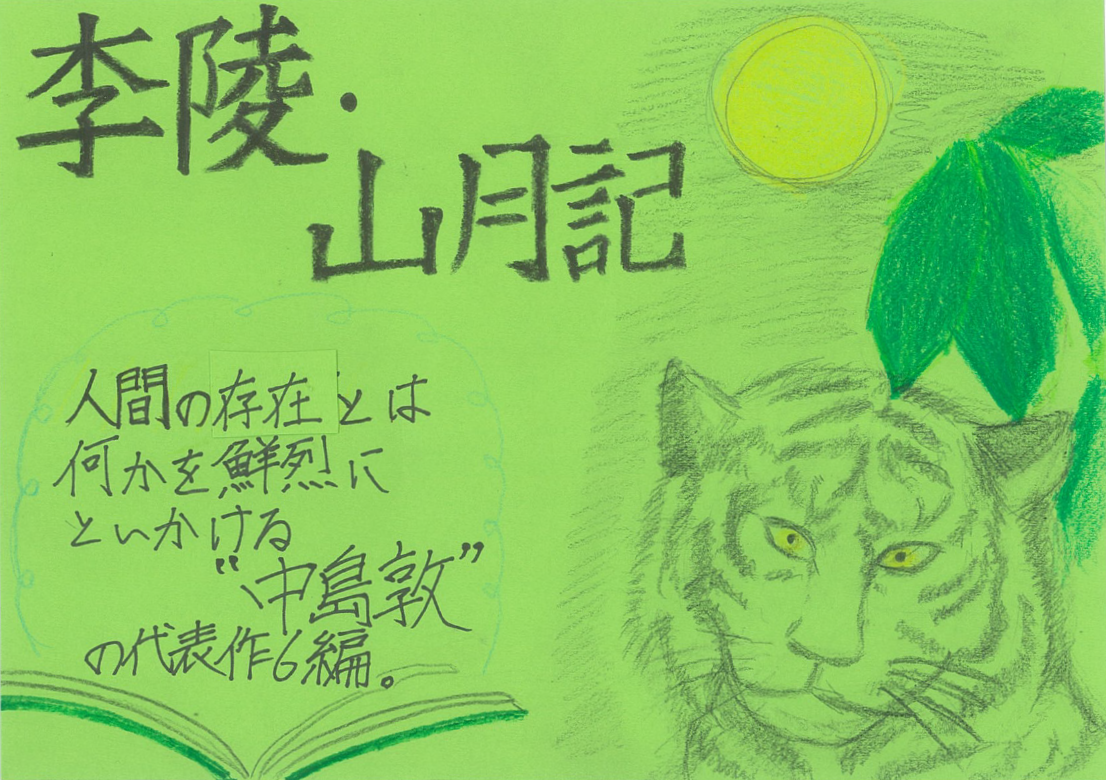 李陵・
山月記
人間の存在とは
何かを鮮烈に
といかける
“中島敦”
の代表作6編。